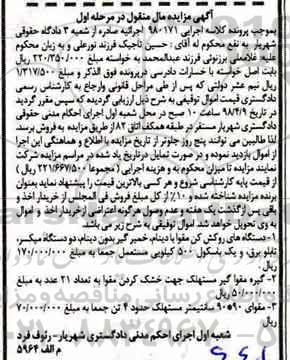 آگهی مزایده مال منقول در مرحله اول
بموجب پرونده کلاسه اجرایی ۹۸۰۱۷۱ اجرائیه صادره از شعبه ۳ دادگاه حقوقی
شهریار به نفع محکوم له آقای : حسین تاجیک فرزند نورعلی و به زیان محکوم
علیه غلامعلی برزنونی فرزند عبدالمحمد به خواسته مبلغ ۲۲۰/۳۵۰/۰۰۰ ریال
بابت اصل خواسته با خسارات دادرسی درپرونده فوق الذکر و مبلغ ۱/۳۱۷/۵۰۰
ریال نیم عشر دولتی که پس از طی مراحل قانونی وارجاع به کارشناس رسمی
دادگستری قیمت اموال توقیفی به شرح ذیل ارزیابی گردیده که سپس مقرر گردید
در تاریخ ۹۸/۴/۹ ساعت ۱۰ صبح در محل شعبه اول اجرای احکام مدنی حقوقی
دادگستری شهریار مستقر در طبقه همکف اتاق ۸۲ از طریق مزایده به فروش برسد.
لذا طالبین می توانند پنج روز جلوتر از تاریخ مزایده با اطلاع و هماهنگی این اجرا
از اموال بازدید نموده و در صورت تمایل درتاریخ یاد شده در مراسم مزایده شرکت
نمایند مزایده تا میزان محکوم به و هزینه اجرایی ( مجموعا ۲۲۱/۶۶۷/۵۰۰ ریال)
از قیمت پایه کارشناسی شروع و هر کسی بالاترین قیمت را پیشنهاد نماید بعنوان
برنده مزایده شناخته شده و ۱۰٪ از کل مبلغ فروش فی المجلس از خریدار اخذ و
باقی پس ازگذشت یک هفته و عدم وصول هرگونه اعتراضی ازخریدار اخذ و اموال
به وی تحویل خواهد شد. اموال توقیفی به شرح زیر می باشد.
۱-دستگاه های روکش کن مقوا با دینام، خمیر گیر بدون دینام، دو دستگاه میکسر،
تابلو برق، و یک باسکول ۵۰۰ کیلویی مستعمل جمعا به مبلغ ۱۷۰/۰۰۰/۰۰۰
ریال.
۲-گیره مقوا گیر مستهلک جهت خشک کردن مقوا به تعداد ۲۱ عدد به مبلغ
۵۰/۰۰۰/۰۰۰ ریال
۳- مقوای ۹۰*۹۰ سانتیمتر مستهلک حدود ۴ تن جمعا به مبلغ ۷۰/۰۰۰/۰۰۰
ریال
شعبه اول اجرای احکام مدنی دادگستری شهریار- رئوف فرد
م الف ۵۹۶۴